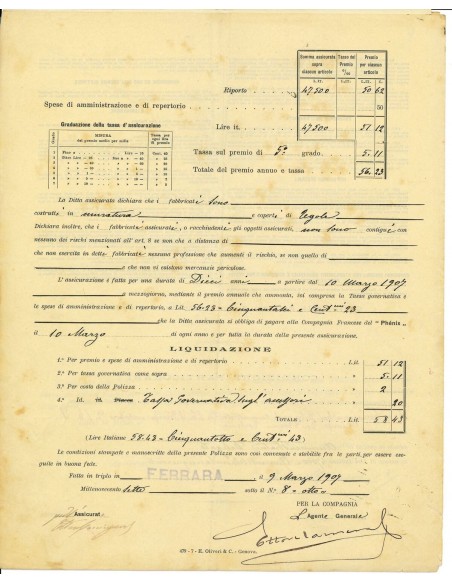 Somma assicurata sopra ciascun articolo
Tassa del Premio
Premio per ciascun articolo
Riporto 47500 50 62
Spese di amministrazione e di repertorio 50
Graduazione della tassa d'assicurazione
Lire it. 47500 51 12
Tassa sul premio di 5° grado. 5 11
Totale del premio annuo e tassa 56 23
La Ditta assicurata dichiara che i fabbricati sono
costrutti in muratura e coperti di tegole
Dichiara inoltre, che i fabbricati assicurati, o racchiudenti gli oggetti assicurati, non sono contigui con
nessuno dei rischi menzionati all'art. 8 se non che a distanza di
che non esercita in detti fabbricati nessuna professione che aumenti il rischio, se non quella di
e che non vi esistono mercanzie pericolose.
L'assicurazione è fatta per una durata di Dieci anni a partire dal 10 Marzo 1907
a mezzogiorno, mediante il premio annuale che ammonta, ivi compresa la Tassa governativa e
le spese di amministrazione e di repertorio, a Lit. 56-23 = Cinquantasei e Cent.mi 23
che la Ditta assicurata si obbliga di pagare alla Compagnia Francese del "Phénix"
il 10 Marzo di ogni anno e per tutta la durata della presente assicurazione.
LIQUIDAZIONE
1.° Per premio e spese di amministrazione e di repertorio Lit. 51 12
2.° Per tassa governativa come sopra » 5 11
3.° Per costo della Polizza » 2
4.° Id. Tassa Governativa sugl' accessori 20
TOTALE Lit. 58 43
(Lire Italiane 58.43 = Cinquantotto e Cent.mi 43)
Le condizioni stampate e manoscritte della presente Polizza sono così convenute e stabilite fra le parti per essere eseguite in buona fede.
Fatto in triplo in FERRARA il 9 Marzo 1907
Millenovecento sette sotto il N.° 8 = otto =
PER LA COMPAGNIA
Assicurat
L'Agente Generale
478 - 7 - E. Oliveri & C. - Genova.